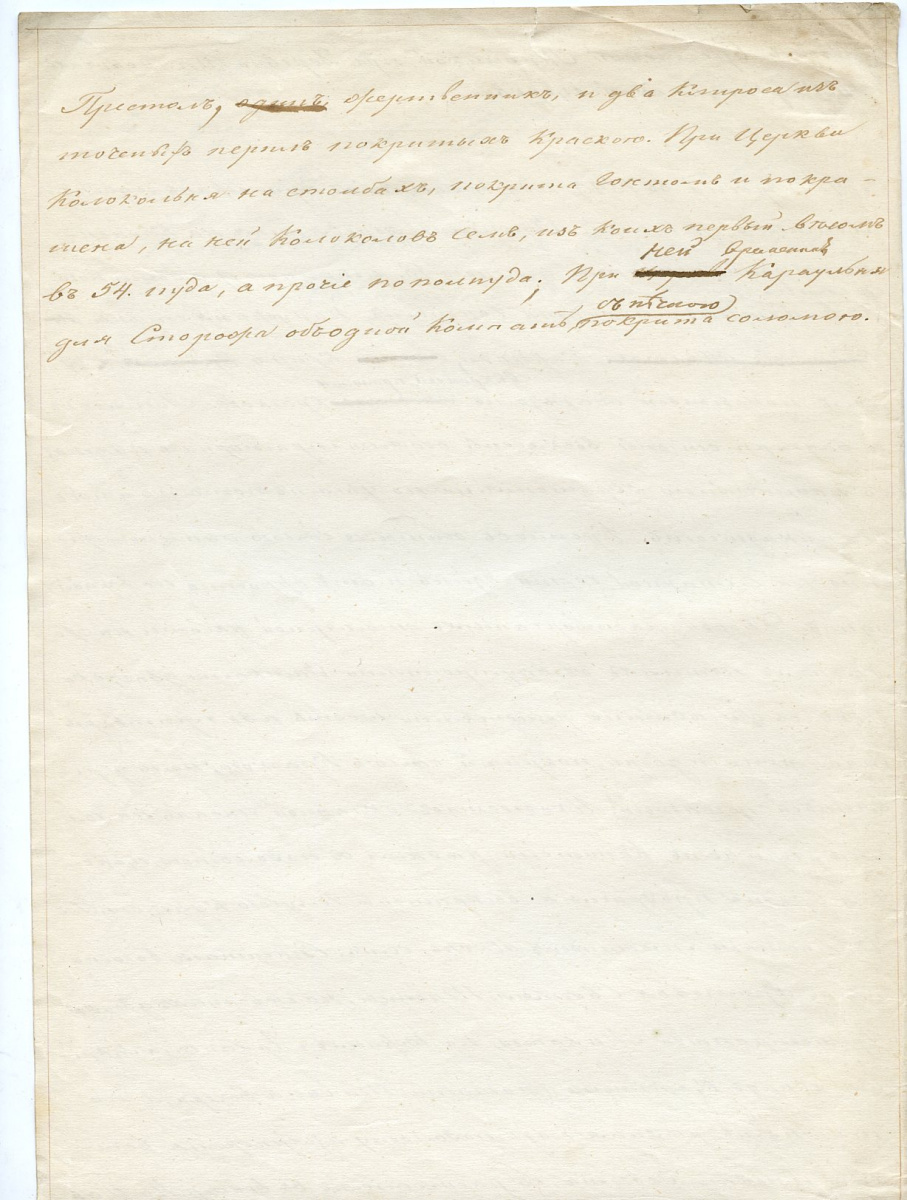 Престолъ, одинъ жертвенникъ, и два клироса изъ
точеныхъ перилъ покрытыхъ краскою. При Церкви
Колокольня на столбахъ, покрыта Гонтомъ и покра-
шена, на ней Колоколовъ семь, изъ коихъ первый вѣсомъ
въ 54. пуда, а прочіе по полпуда; При ней временная Караульня
для Сторожа объ одной Комнатѣ, съ пѣчкою покрыта соломою.